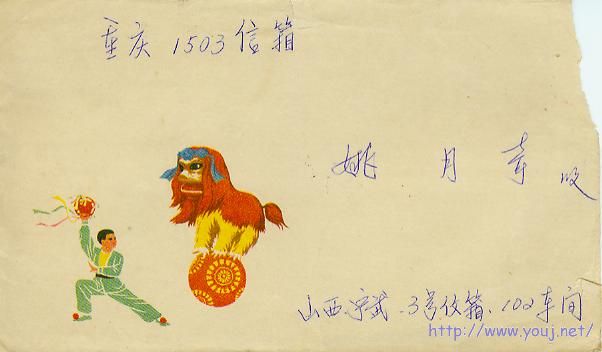 重庆 1503信箱
姚月
收
山西、宁武、3号信箱、102车间
http://www.youj.net/